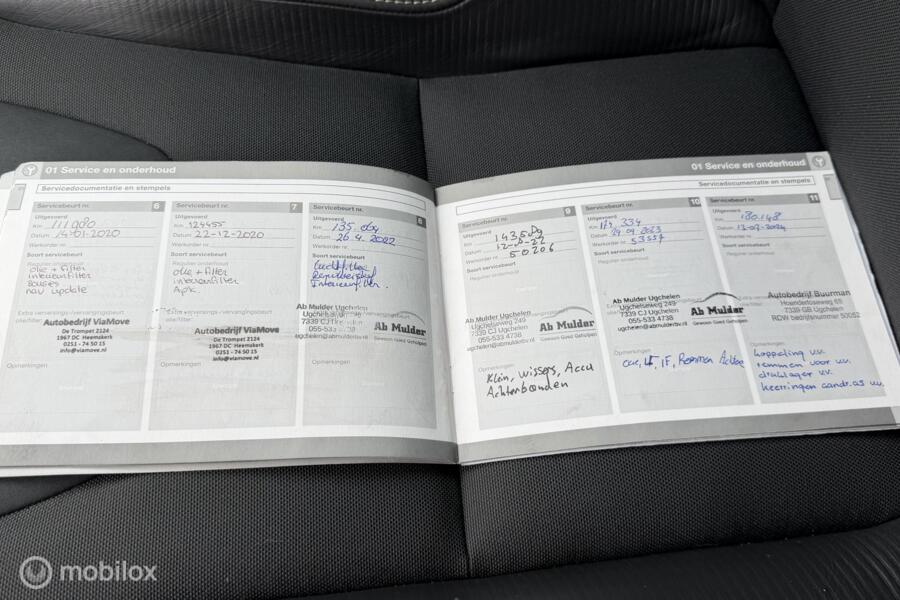 01 Service en onderhoud
Servicedocumentatie en stempels
Servicebeurt nr. 6
Uitgevoerd
Km 111980
Datum 14-01-2020
Werkorder nr.
Soort servicebeurt
Regulier onderhoud
olie + filter
interieurfilter
Bougies
nav update
Extra verversings-/vervangingsbeurt
olie/filter:
Autobedrijf ViaMove
De Trompet 2124
1967 DC Heemskerk
0251 - 74 50 15
info@viamove.nl
Opmerkingen
Servicebeurt nr. 7
Uitgevoerd
Km 124455
Datum 22-12-2020
Werkorder nr.
Soort servicebeurt
Regulier onderhoud
olie + filter
interieurfilter
Apk.
Autobedrijf ViaMove
De Trompet 2124
1967 DC Heemskerk
0251 - 74 50 15
info@viamove.nl
Opmerkingen
Servicebeurt nr. 8
Uitgevoerd
Km 135.
Datum 26.4.2022
Werkorder nr.
Soort servicebeurt
Luchtfilter
Interieurfilter.
Ab Mulder Ugchelen
Ugchelseweg 249
7339 CJ Ugchelen
055-533 4738
ugchelen@abmulderbv.nl
Ab Mulder
Gewoon Goed Geholpen
Opmerkingen
01 Service en onderhoud
Servicedocumentatie en stempels
Servicebeurt nr. 9
Uitgevoerd
Km
Datum
Werkorder nr. 50206
Soort servicebeurt
Regulier onderhoud
Ab Mulder Ugchelen
Ugchelseweg 249
7339 CJ Ugchelen
055-533 4738
ugchelen@abmulderbv.nl
Ab Mulder
Gewoon Goed Geholpen
Opmerkingen
Klein, wissers, Accu
Achterbanden
Servicebeurt nr. 10
Uitgevoerd
Km 174 334
Datum 29 09 2023
Werkorder nr. 53557
Soort servicebeurt
Regulier onderhoud
Ab Mulder Ugchelen
Ugchelseweg 249
7339 CJ Ugchelen
055-533 4738
ugchelen@abmulderbv.nl
Ab Mulder
Gewoon Goed Geholpen
Opmerkingen
Olie, LF, IF, Remmen Achter
Servicebeurt nr. 11
Uitgevoerd
Km 180.148
Datum 12-07-2024
Werkorder nr.
Soort servicebeurt
Regulier onderhoud
Autobedrijf Buurman
Hoenderloseweg 65
7339 GB Ugchelen
RDW bedrijfsnummer 50052
Opmerkingen
koppeling v.v.
remmen voor v.v.
druklager v.v.
keerringen aandr.as v.v.
mobilox